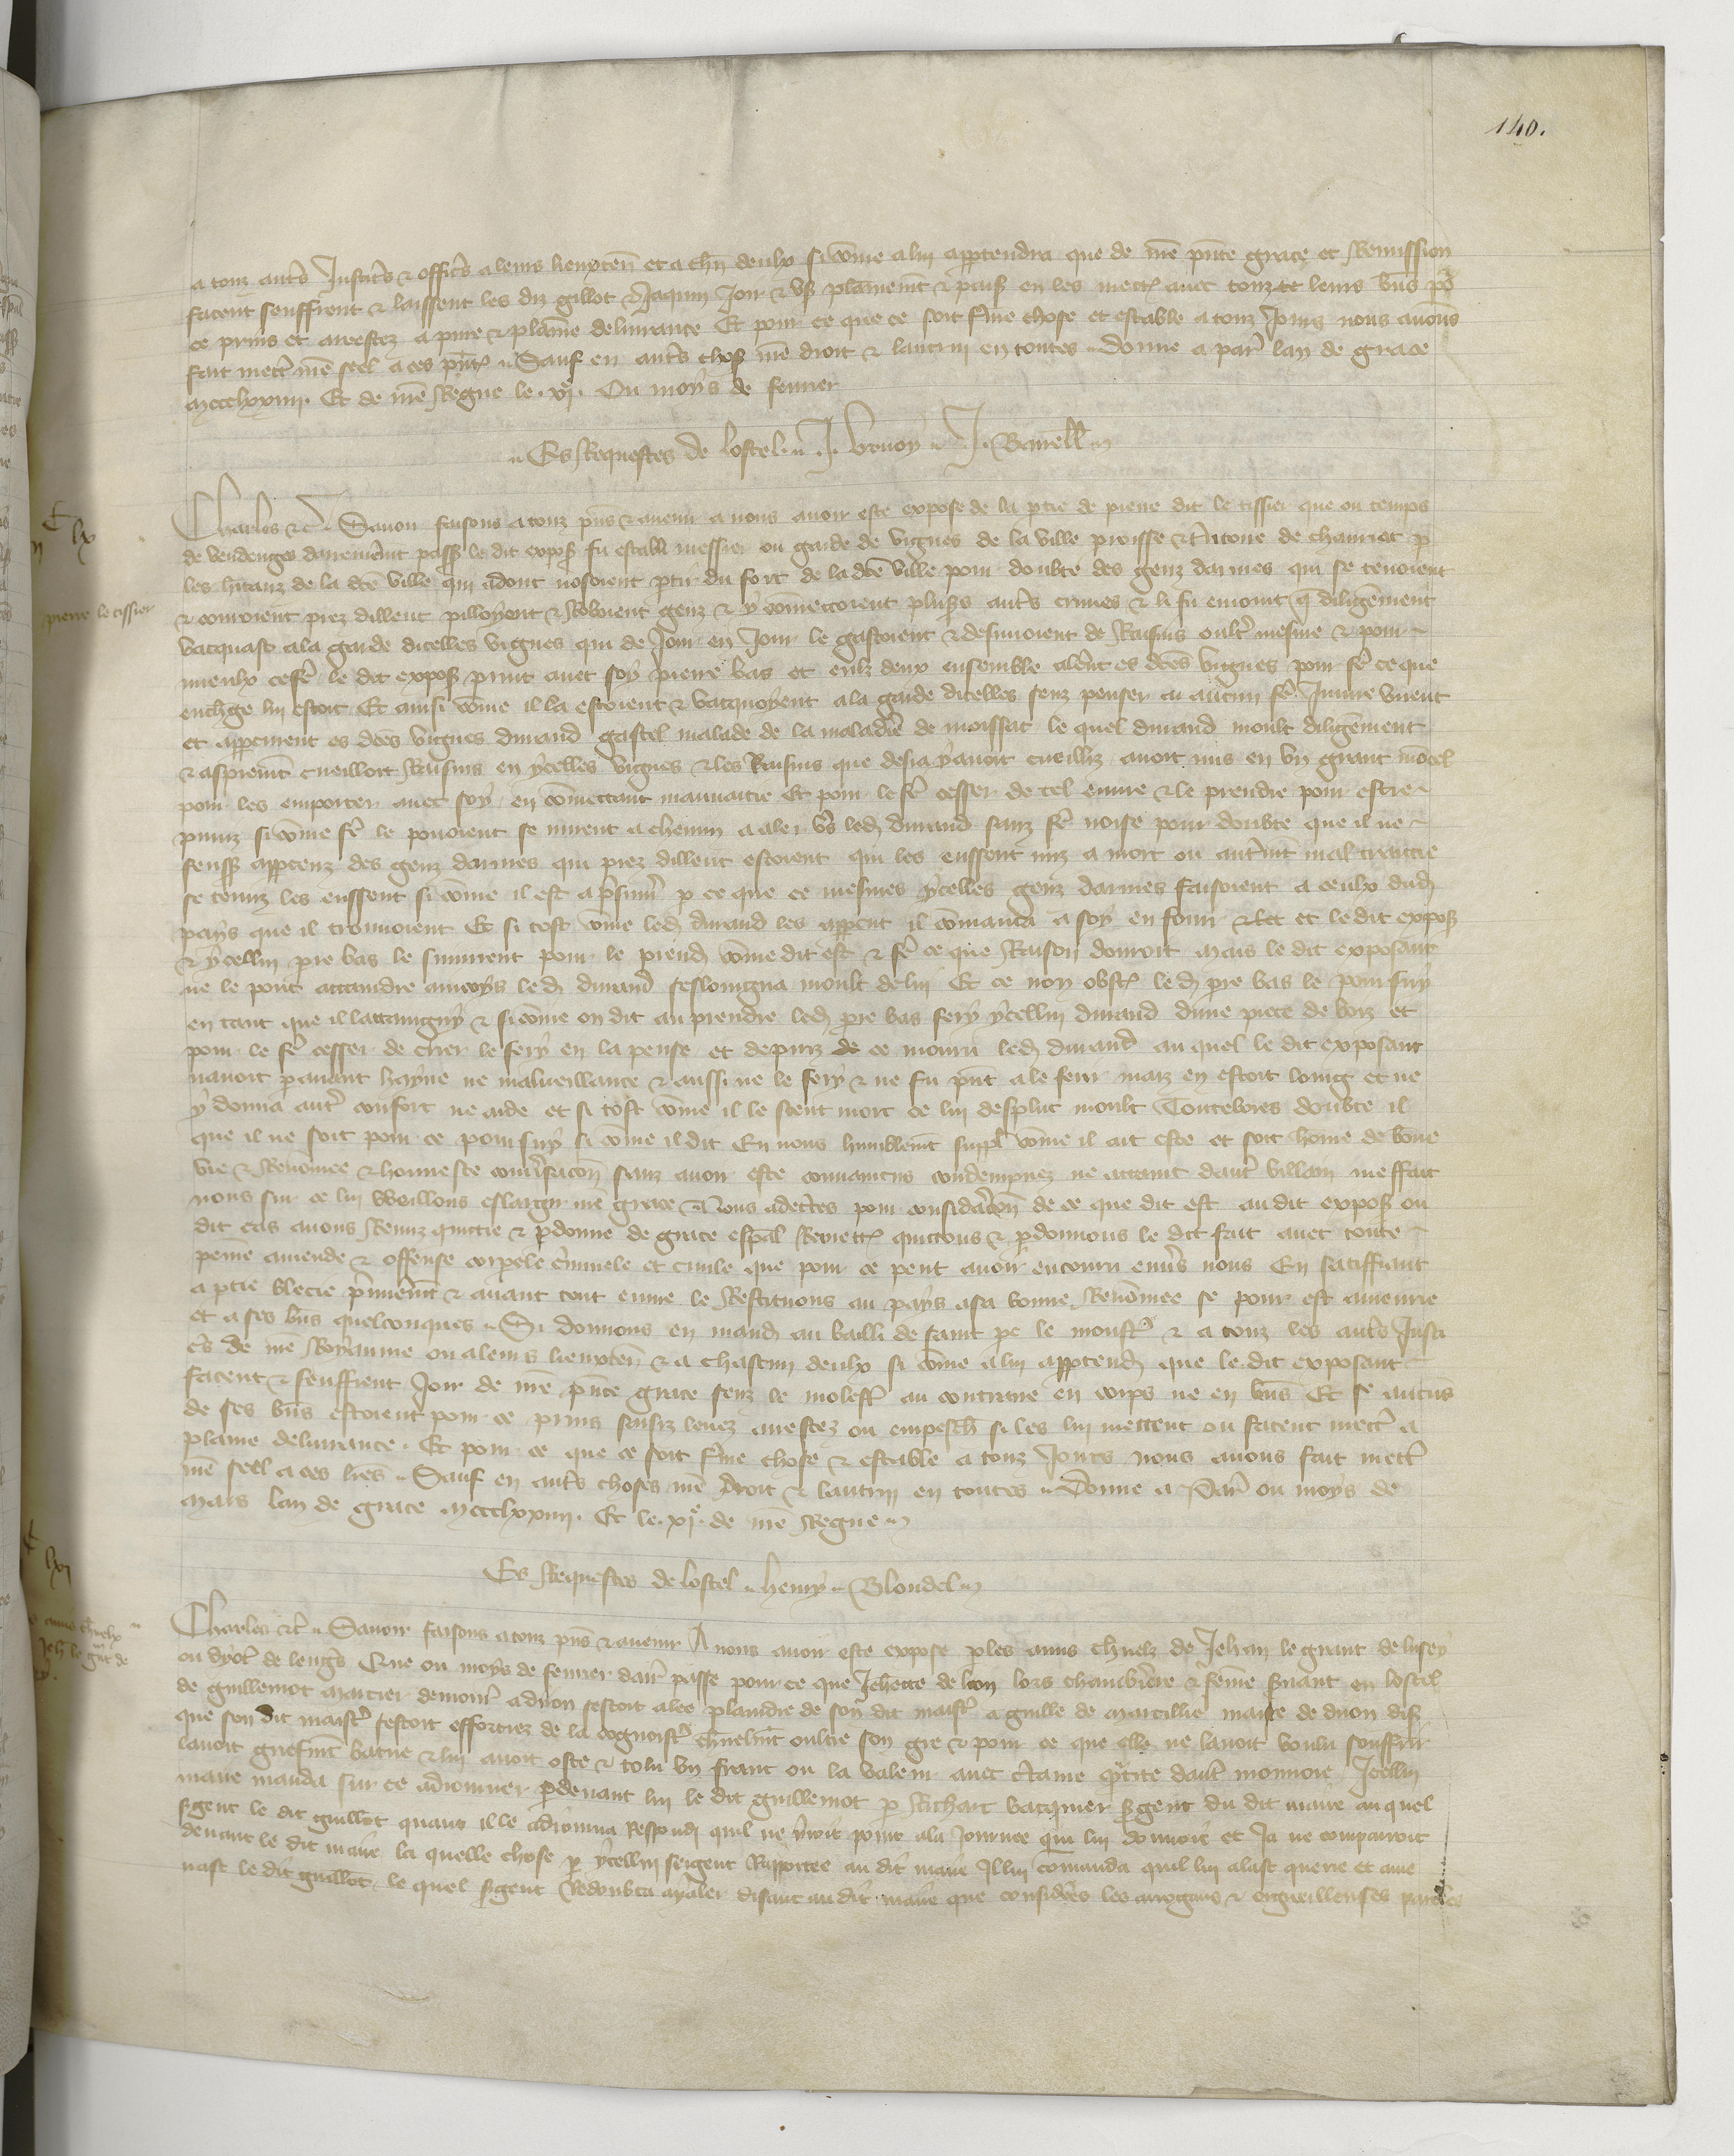 140.
a touz autres Justiciers & officiers a leurs lieuxten et a chun deulx si comme a lui appartendra que de nre pnte grace et Remission
facent seuffrent & laissent les diz gillot & Jaquin Joir & user plainement & paisiblement en les mectre auec touz leurs biens por
ce prins et arrestez a pure & plaine deliurance Et pour ce que ce soit ferme chose et estable a touz Jours nous auons
fait mettre nre seel a ces pntes Sauf en autres choses nre droit & lautruy en toutes Donne a paris lan de grace
mccclxxiiii. Et de nre Regne le .xj. Ou moys de feurier
Es Requestes de lostel J. vernoy J. Barrell
Charles &c Sauoir faisons a touz pns & auenir a nous auoir este expose de la ptie de pierre dit le tissier que ou temps
de vendenges darrenierement passe le dit expos fu establi messier ou garde de vignes de la ville paroisse & terrouer de chauriat par
les hitanz de la dce ville qui adont nosoient partir du fort de la dce ville pour doubte des genz darmes qui se tenoient
& couroient prez dilleuc pilloyent & Roboient genz & y commettoient pluss autres crimes & li fu enioint que diligemment
vacquast a la garde dicelles vignes qui de Jour en Jour le gastoient & desnuoient de Raisins oultre mesure & pour
mieulx ce fere le dit expos print auec soy pierre bas et eulz deux ensemble alerent es dces vignes pour fere ce que
enchge lui estoit Et ainsi comme il la estoient & vacquoyent a la garde dicelles senz penser a aucun fere Iniure virent
et apperceurent es dces vignes durand gastel malade de la maladerie de moissat le quel durand moult diligemment
& asprement cueilloit Raisins en ycelles vignes & les Raisins que desia y auoit cueilliz auoit mis en vn grant moncel
pour les emporter auec soy en commettant mauuaitie Et pour le fere cesser de tel euure & le prendre pour estre
puniz si comme fere le pouoient se mirent a chemin a aler vers led durand sanz fere noise pour doubte que il ne
feuss apperceuz des genz darmes qui prez dilleuc estoient qui les eussent miz a mort ou autrement mal traictie
se tenuz les eussent si comme il est a presumer p ce que ce mesmes ycelles genz darmes faisoient a ceulx dud
pays que il trouuoient Et si tost comme led durand les apperceut il commanca a soy en fouir & let et le dit expos
& ycellui pre bas le suiuirent pour le prendre comme dit est & fere ce que Raison donroit mais le dit exposant
ne le pout attaindre aincoys led durand sesloingna moult de lui Et ce non obst led pre bas le poursuy
en tant que il lattaingny & si comme on dit au prendre led pre bas fery ycellui durand dune piece de boiz et
pour le fere cesser de crier le fery en la pense et depuiz de ce mouru led durand au quel le dit exposant
nauoit parauant hayne ne malueillance & aussi ne le fery & ne fu pnt a le ferir maiz en estoit loing et ne
y donna autre confort ne aide et si tost comme il le sceut mort ce lui desplut moult Touteuoies doubte il
que il ne soit pour ce poursuy si comme il dit En nous humblemt suppl comme il ait este et soit home de bone
vie & Renomee & honneste conuersacion sanz auoir este conuaincus condempnez ne attaint dautre villain meffait
nous sur ce lui vueillons eslargir nre grace Nous adcertes pour consideracon de ce que dit est au dit expos ou
dit cas auons Remiz quictie & pdonne de grace espal Remett quictons & pdonnons le dit fait auec toute
peine amende & offense corporele criminele et ciuile que pour ce peut auoir encouru enuers nous En satiffiant
a ptie blecie premierement & auant tout euure le Restituons au pays a sa bonne Renommee se pour est amenrie
et a ses biens quelconques Si donnons en mand au bailli de saint pe le moustr & a touz les autres Justi
ers de nre Royaume ou a leurs lieuxten & a chascun deulx si comme a lui appartend que le dit exposant
facent & seuffrent Joir de nre pnte grace senz le molester au contraire en corps ne en biens Et se aucuns
de ses biens estoient pour ce prins saisiz leuez arrestez ou empesch si les lui mettent ou facent mectre a
plaine deliurance. Et pour ce que ce soit ferme chose & estable a touz Jours nous auons fait mettre
nre seel a ces lres Sauf en autres choses nre droit & lautruy en toutes Donne a Paris ou moys de
Mars lan de grace mccclxxiiii. Et le .xje. de nre Regne
Es Requestes de lostel henry Blondel
Charles &c Sauoir faisons a touz pns & auenir A nous auoir este expose p les amis charnelz de Jehan le grant de lusey
ou dyoc de lengres Que ou moys de feurier darr passe pour ce que Jehette de lion lors chamberiere & femme seruant en lostel
de guillemot marcier demourant a diion sestoit alee plaindre de son dit maistre a guille de marcillie maire de diion dis
que son dit maistre sestoit efforciez de la cognoistre charnelment oultre son gre & pour ce que elle ne lauoit voulu souffrir
lauoit griefment batue & lui auoit oste & tolu vn franc ou la valeur auec certaine quantite dautre monnoie Icellui
maire manda sur ce adiourner pdeuant lui le dit guillemot p Richart vacquier sergent du dit maire au quel
sergent le dit guillot quant il le adiourna Respondi quil ne yroit point a la Journee qui lui donnoit et Ja ne comparroit
deuant le dit maire la quelle chose p ycellui sergent Rapportee au dit maire Il lui commanda quil lui alast querre et ame
nast le dit guillot le quel sergent Redoubta a y aler disant au dit maire que considerees les arrogans & orgueilleuses paroles
lx
pierre le tissier
lxj
amis charnelx
Jeh le grant de